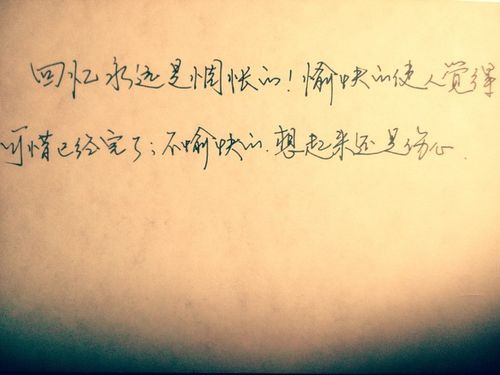 回忆永远是惆怅的！愉快的使人觉得
可惜已经完了；不愉快的.想起来还是伤心.